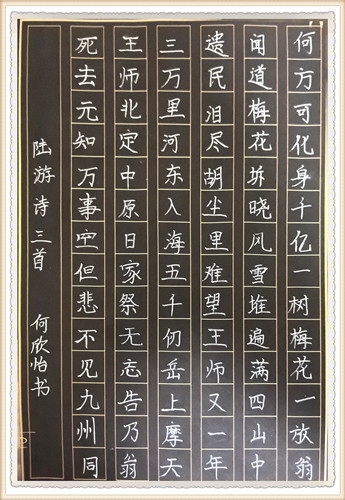 何方可化身千亿一树梅花一放翁
闻道梅花坼晓风雪堆遍满四山中
遗民泪尽胡尘里难望王师又一年
三万里河东入海五千仞岳上摩天
王师北定中原日家祭无忘告乃翁
死去元知万事空但悲不见九州同
陆游诗三首 何欣怡书